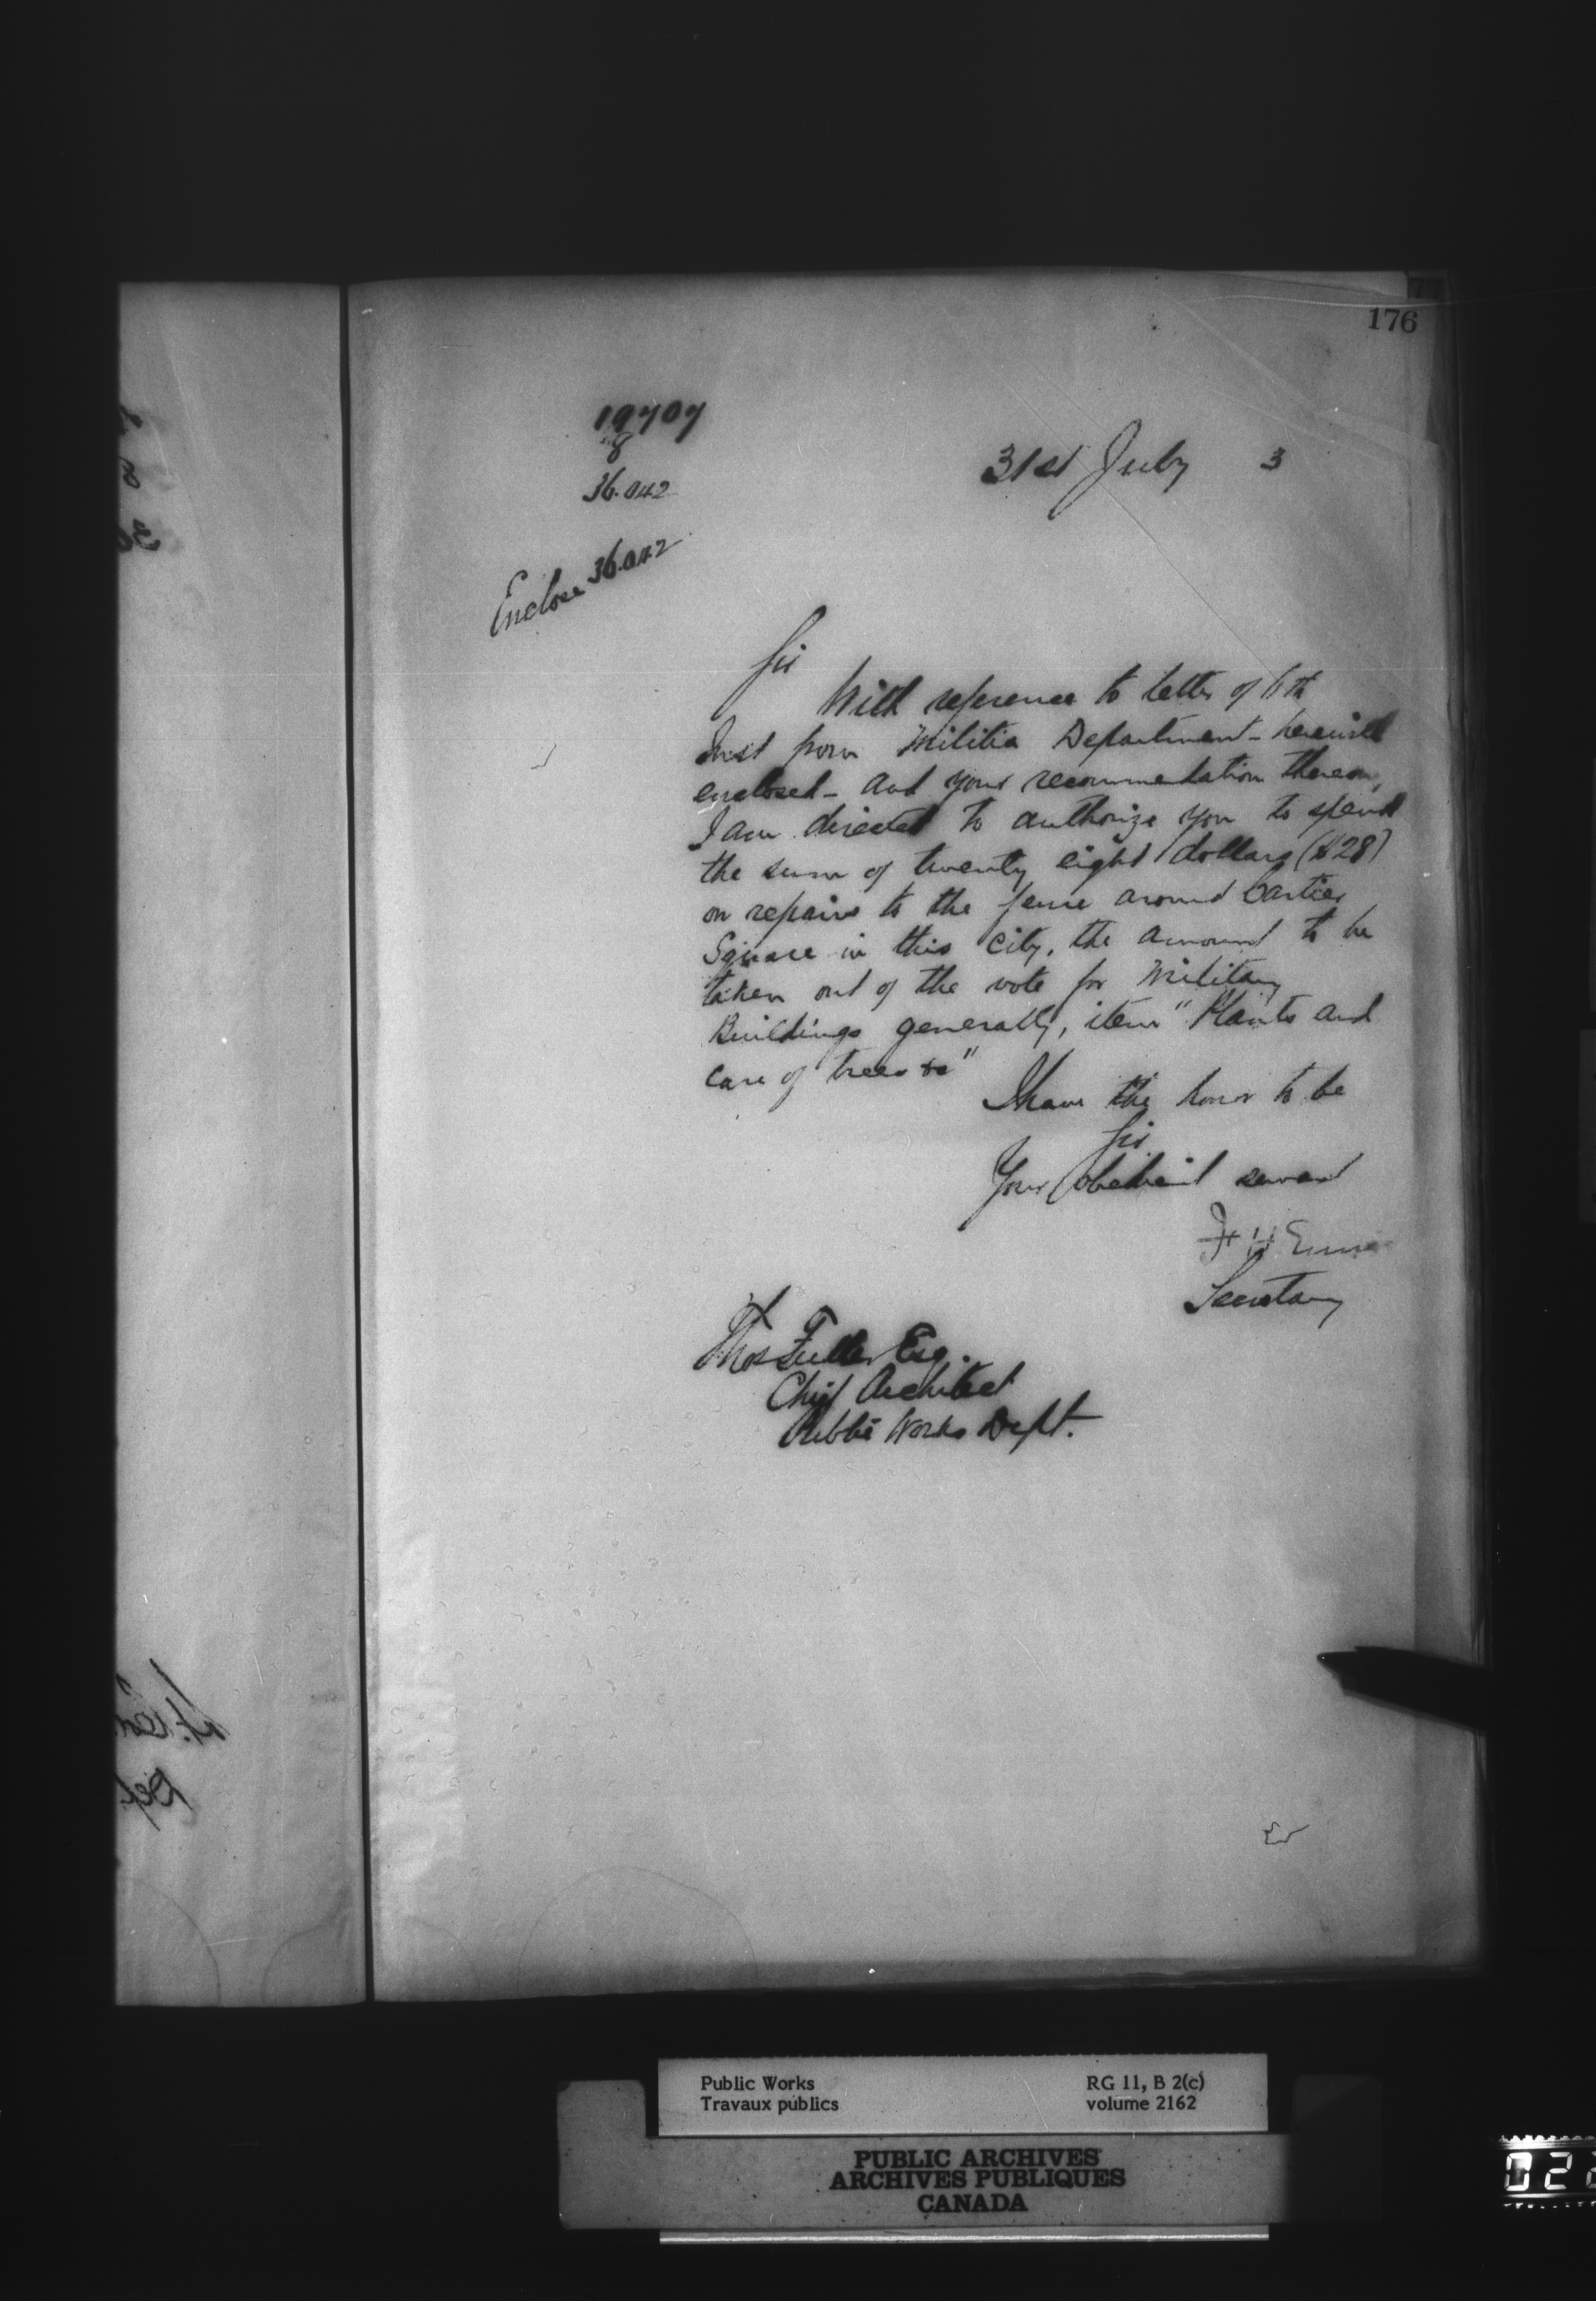 176
19707
8
36.042
31st July 3
Enclose 36.042
Sir
With reference to letter of 6th
Inst from Militia Department - herewith
enclosed - and your recommendation thereon,
I am directed to authorize you to spend
the sum of twenty eight dollars ($28)
on repairs to the fence around Cartier
Square in this city, the amount to be
taken out of the vote for Military
Buildings generally, item "Plants and
care of trees &c"
I have the honor to be
Sir
Your obedient servant
F H Ennis
Secretary
Thos Fuller Esq.
Chief Architect
Public Works Dept.
Public Works
Travaux publics
RG 11, B 2(c)
volume 2162
PUBLIC ARCHIVES
ARCHIVES PUBLIQUES
CANADA